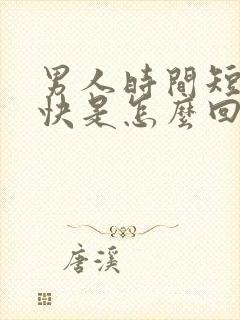 男人時間短
快是怎麼回
唐溪